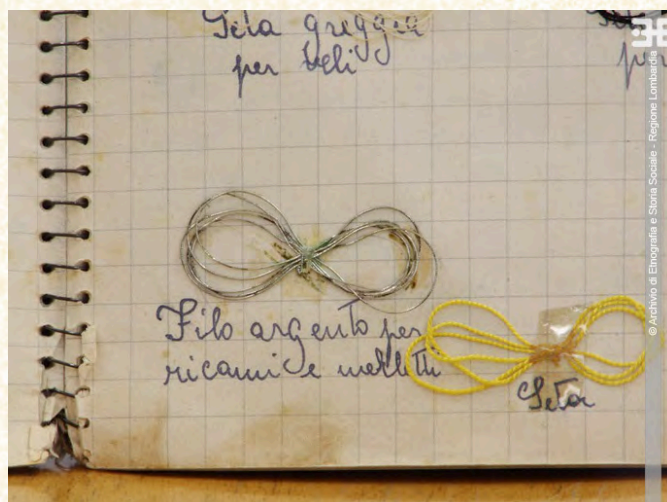 Seta greggia
per veli
per
Filo argento per
ricami e merletti
Seta
© Archivio di Etnografia e Storia Sociale - Regione Lombardia